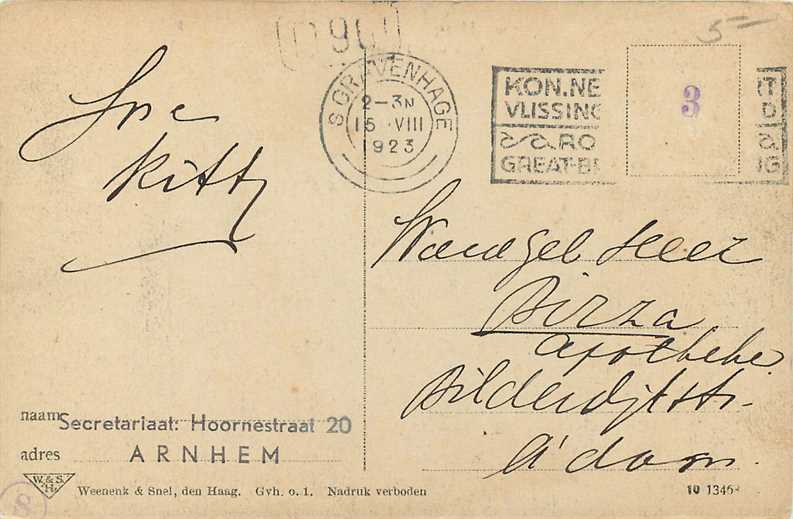 5-
S GRAVENHAGE
2-3N
15 VIII
1923
KON.NE RT
VLISSING D
RO
GREAT-B NG
3
Kitty
WelEdgeb Heer
Birza
Apotheke
Bilderdijkstr.
A'dam.
naam
Secretariaat: Hoornestraat 20
adres
ARNHEM
W. & S.
H.
Weenenk & Snel, den Haag. Gvh. o. 1. Nadruk verboden
10 1346
8